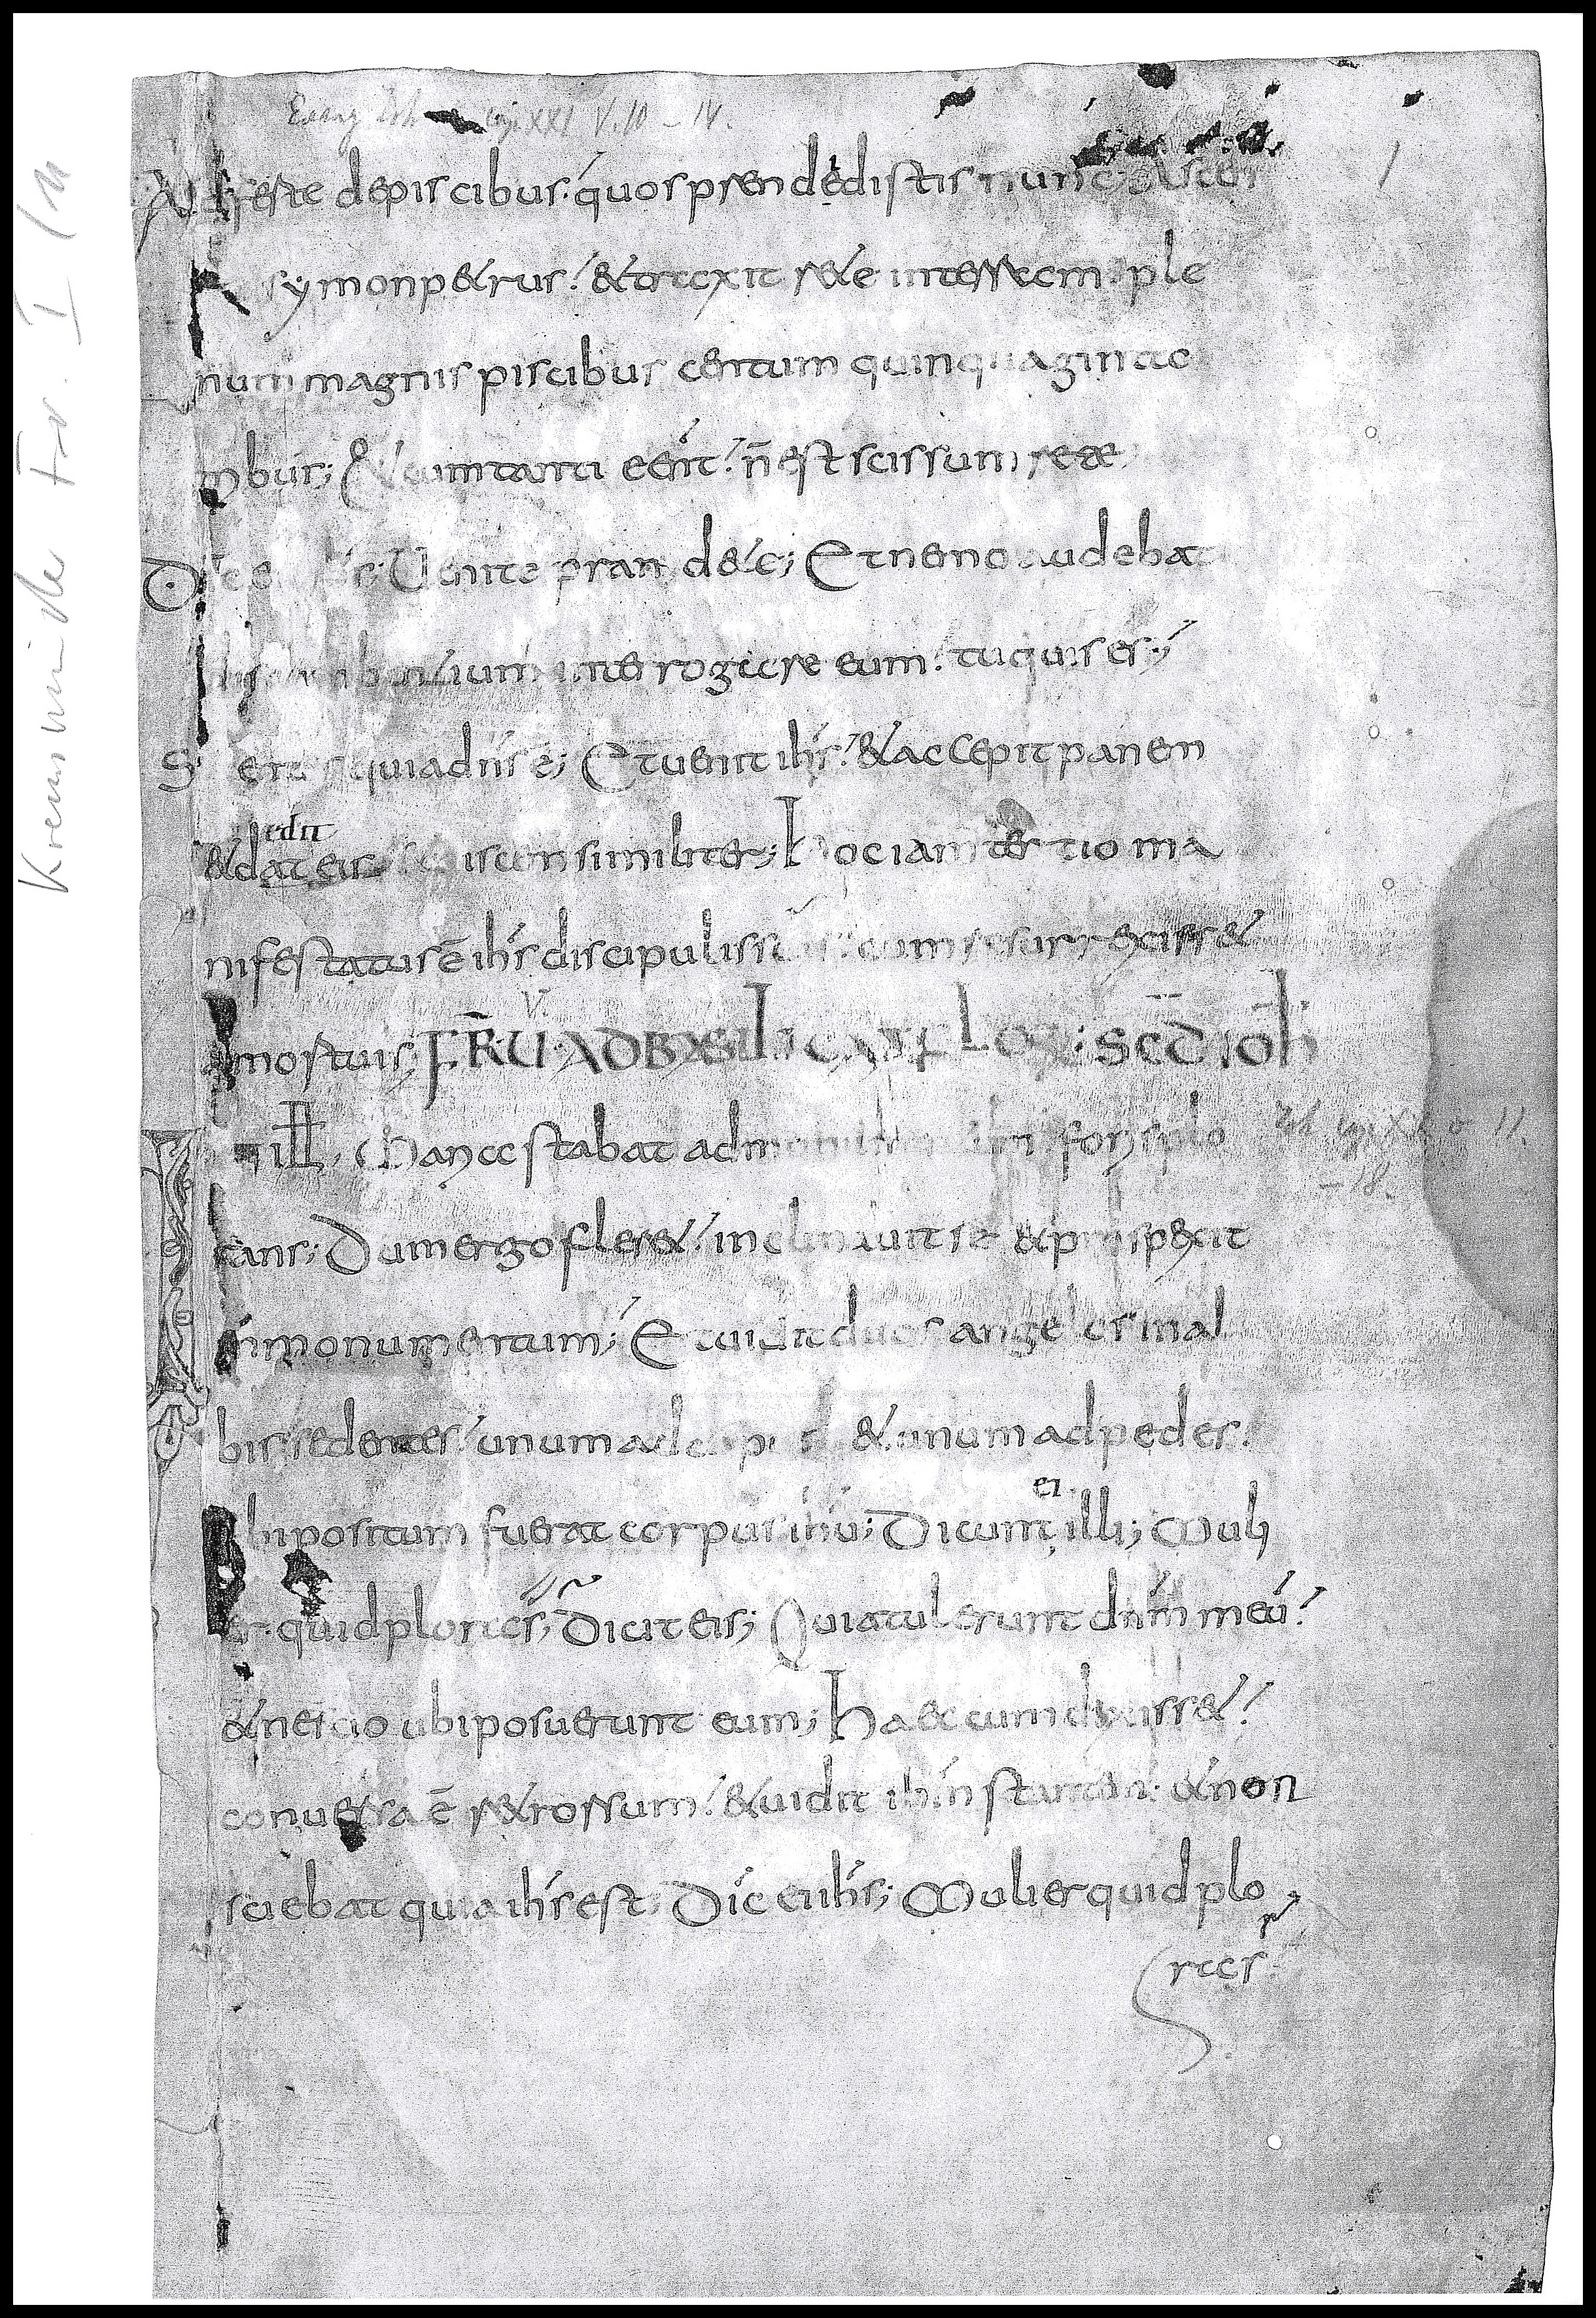 Evang Joh cap XXI V. 10 – 14.
Afferte depiscibus. quos prendedistis nunc; Ascen
symon petrus. & traxit rete interram. ple
num magnis piscibus centum quinquaginta
tribus; Et cum tanti eēnt. n̄ est scissum rete
Venite prandete; Et nemo audebat
discumbentium interrogare eum. tu quis es;
quia dn̄s ē; Et uenit ih̄s. & accepit panem
edit
& dat eis piscem similiter; hoc iam tertio ma
nifestatus ē ih̄s discipulis suis. cum resurrexisset
V.
a mortuis; FR̄ U AD BASILICA SCD IOH
ill, Maria stabat ad monumentum foris plo
– 18.
rans; Dum ergo fleret. inclinauit se & prospexit
in monumentum; Et uidit duos angelos in al
bis sedentes. unum ad caput & unum ad pedes.
ei
ubi positum fuerat corpus ih̄u; Dicunt illi; Muli
er. quid ploras; Dicit eis; Quia tulerunt dn̄m meū.
& nescio ubi posuerunt eum; haec cum dixisset.
conuersa ē retrorsum. & uidit ih̄m stantem. & non
sciebat quia ih̄s est; Dic ei ih̄s; Mulier quid plo
ras.
Kremsmünster Fr. I/1